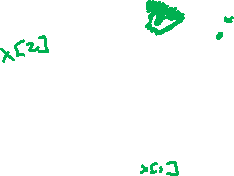 x[2]
x[1]